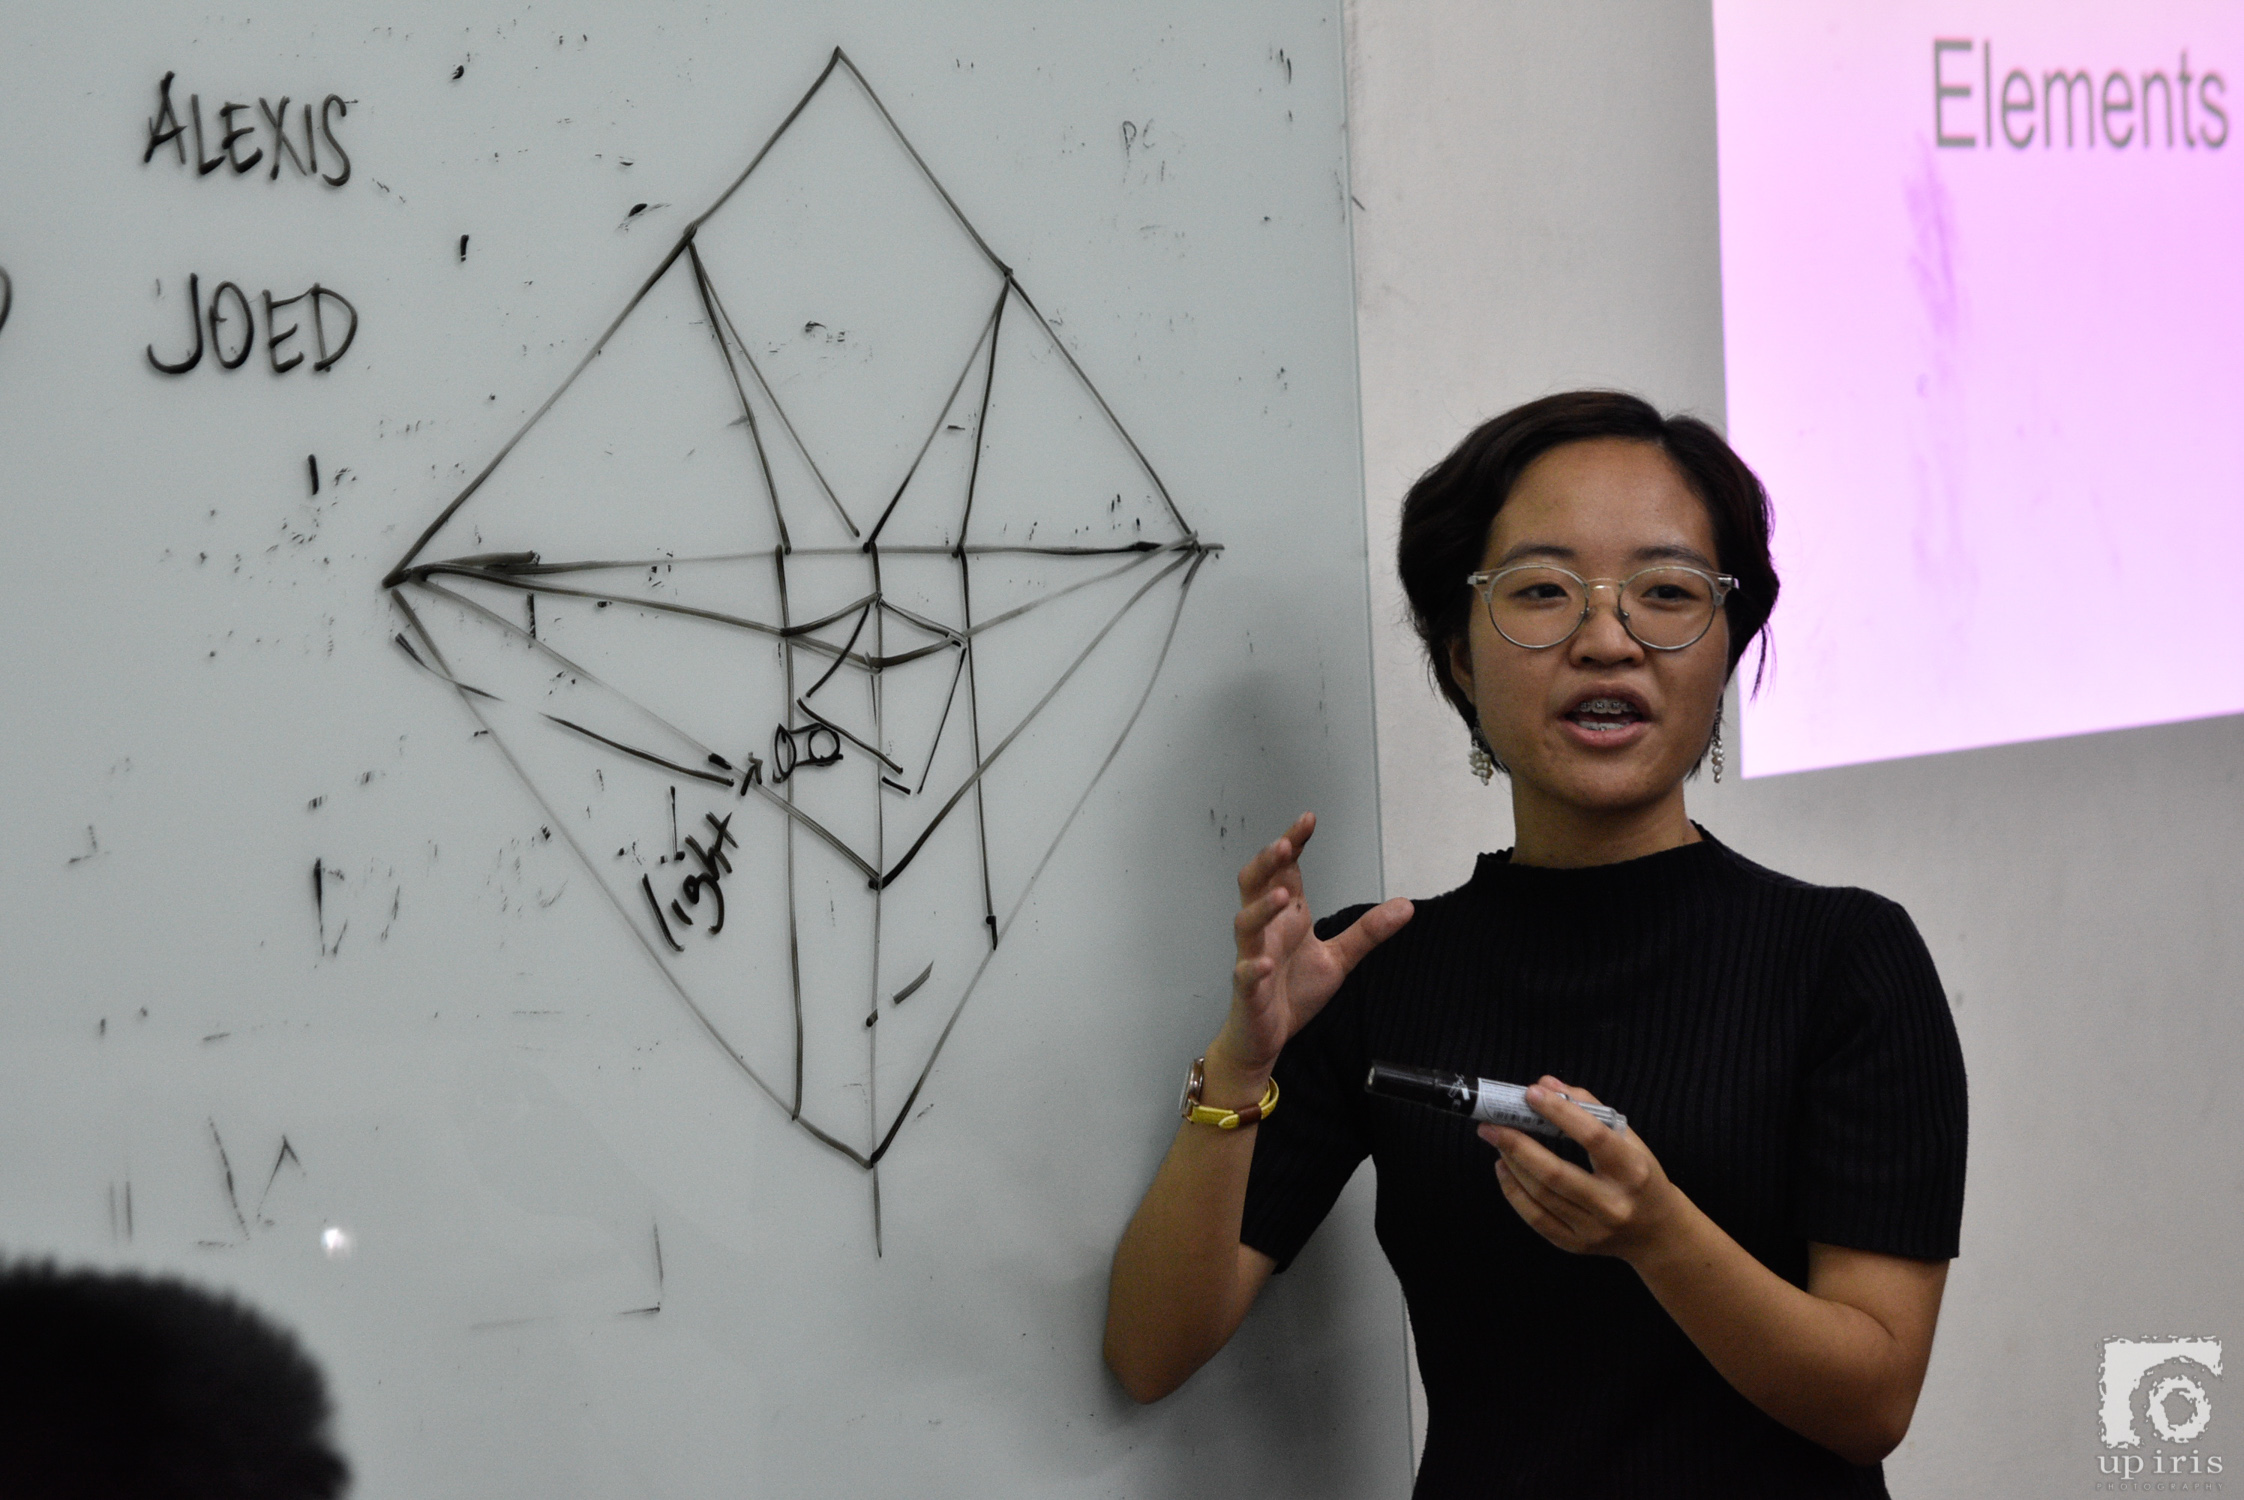 ALEXIS
JOED
light
Elements
up iris
PHOTOGRAPHY